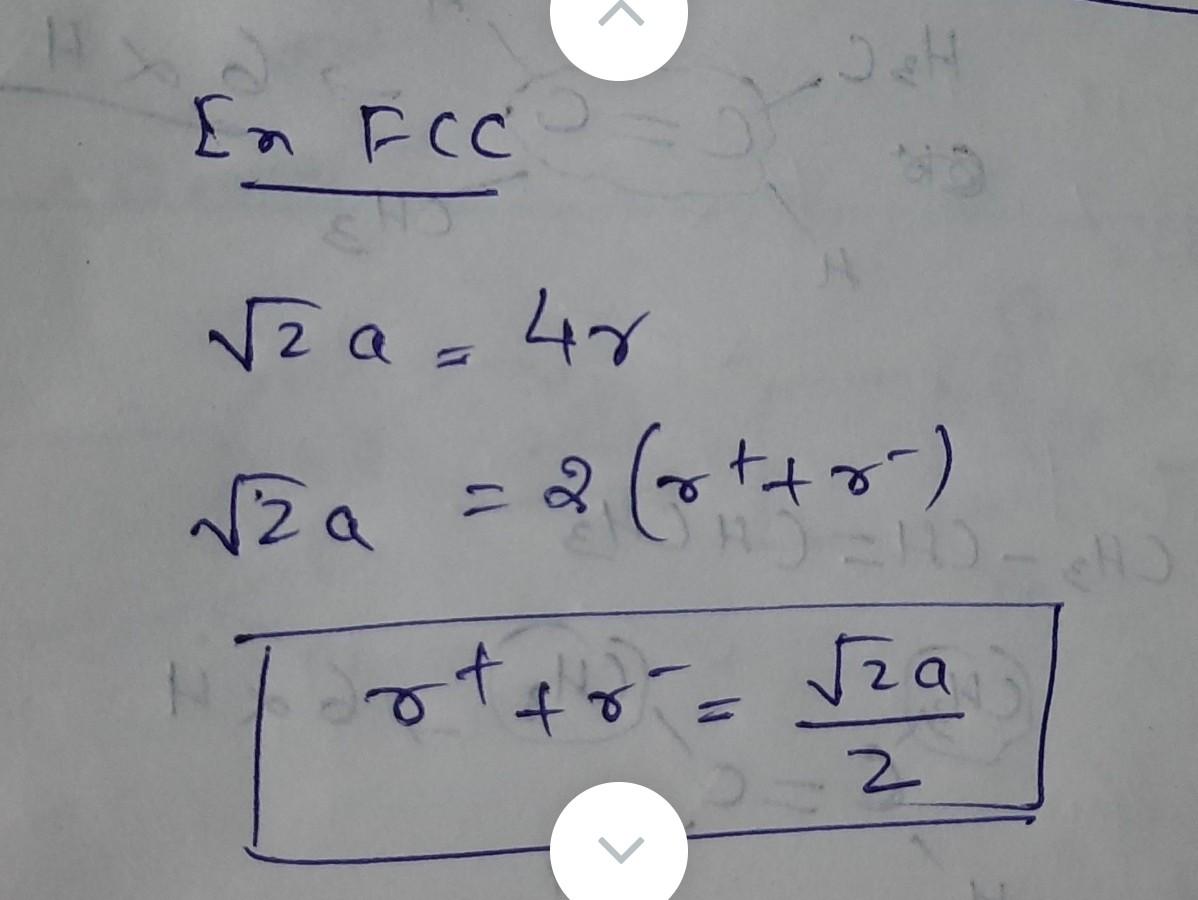 En FCC
√2 a = 4r
√2 a = 2 (r⁺ + r⁻)
r⁺ + r⁻ = √2 a / 2